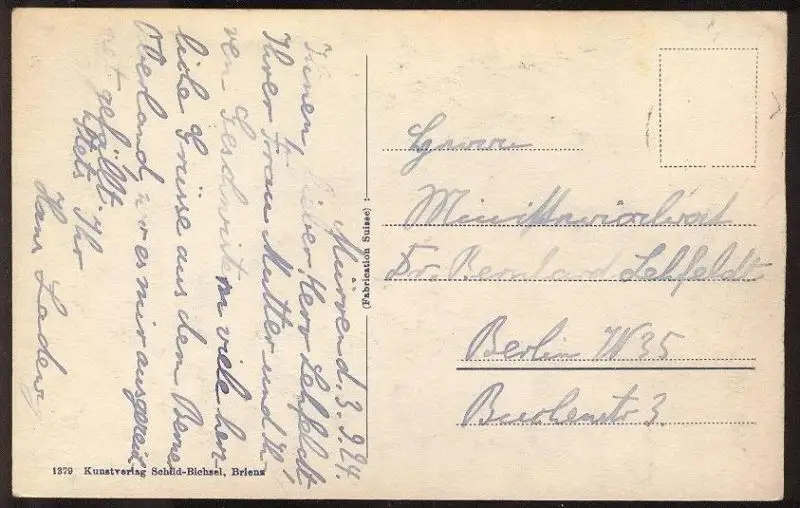 Mürren d. 3. 9. 24.
Ihnen, lieber Herr Lehfeldt
Ihrer Frau Mutter und H.
ren Geschwistern viele herz
liche Grüsse aus dem Berner
Oberland, wo es mir ausgezeich
net gefällt.
Stets Ihr
Hans
(Fabrication Suisse)
Herrn
Ministerialrat
Dr. Bernhard Lehfeldt
Berlin W 35
str 3.
1379 Kunstverlag Schild-Bichsel, Brienz